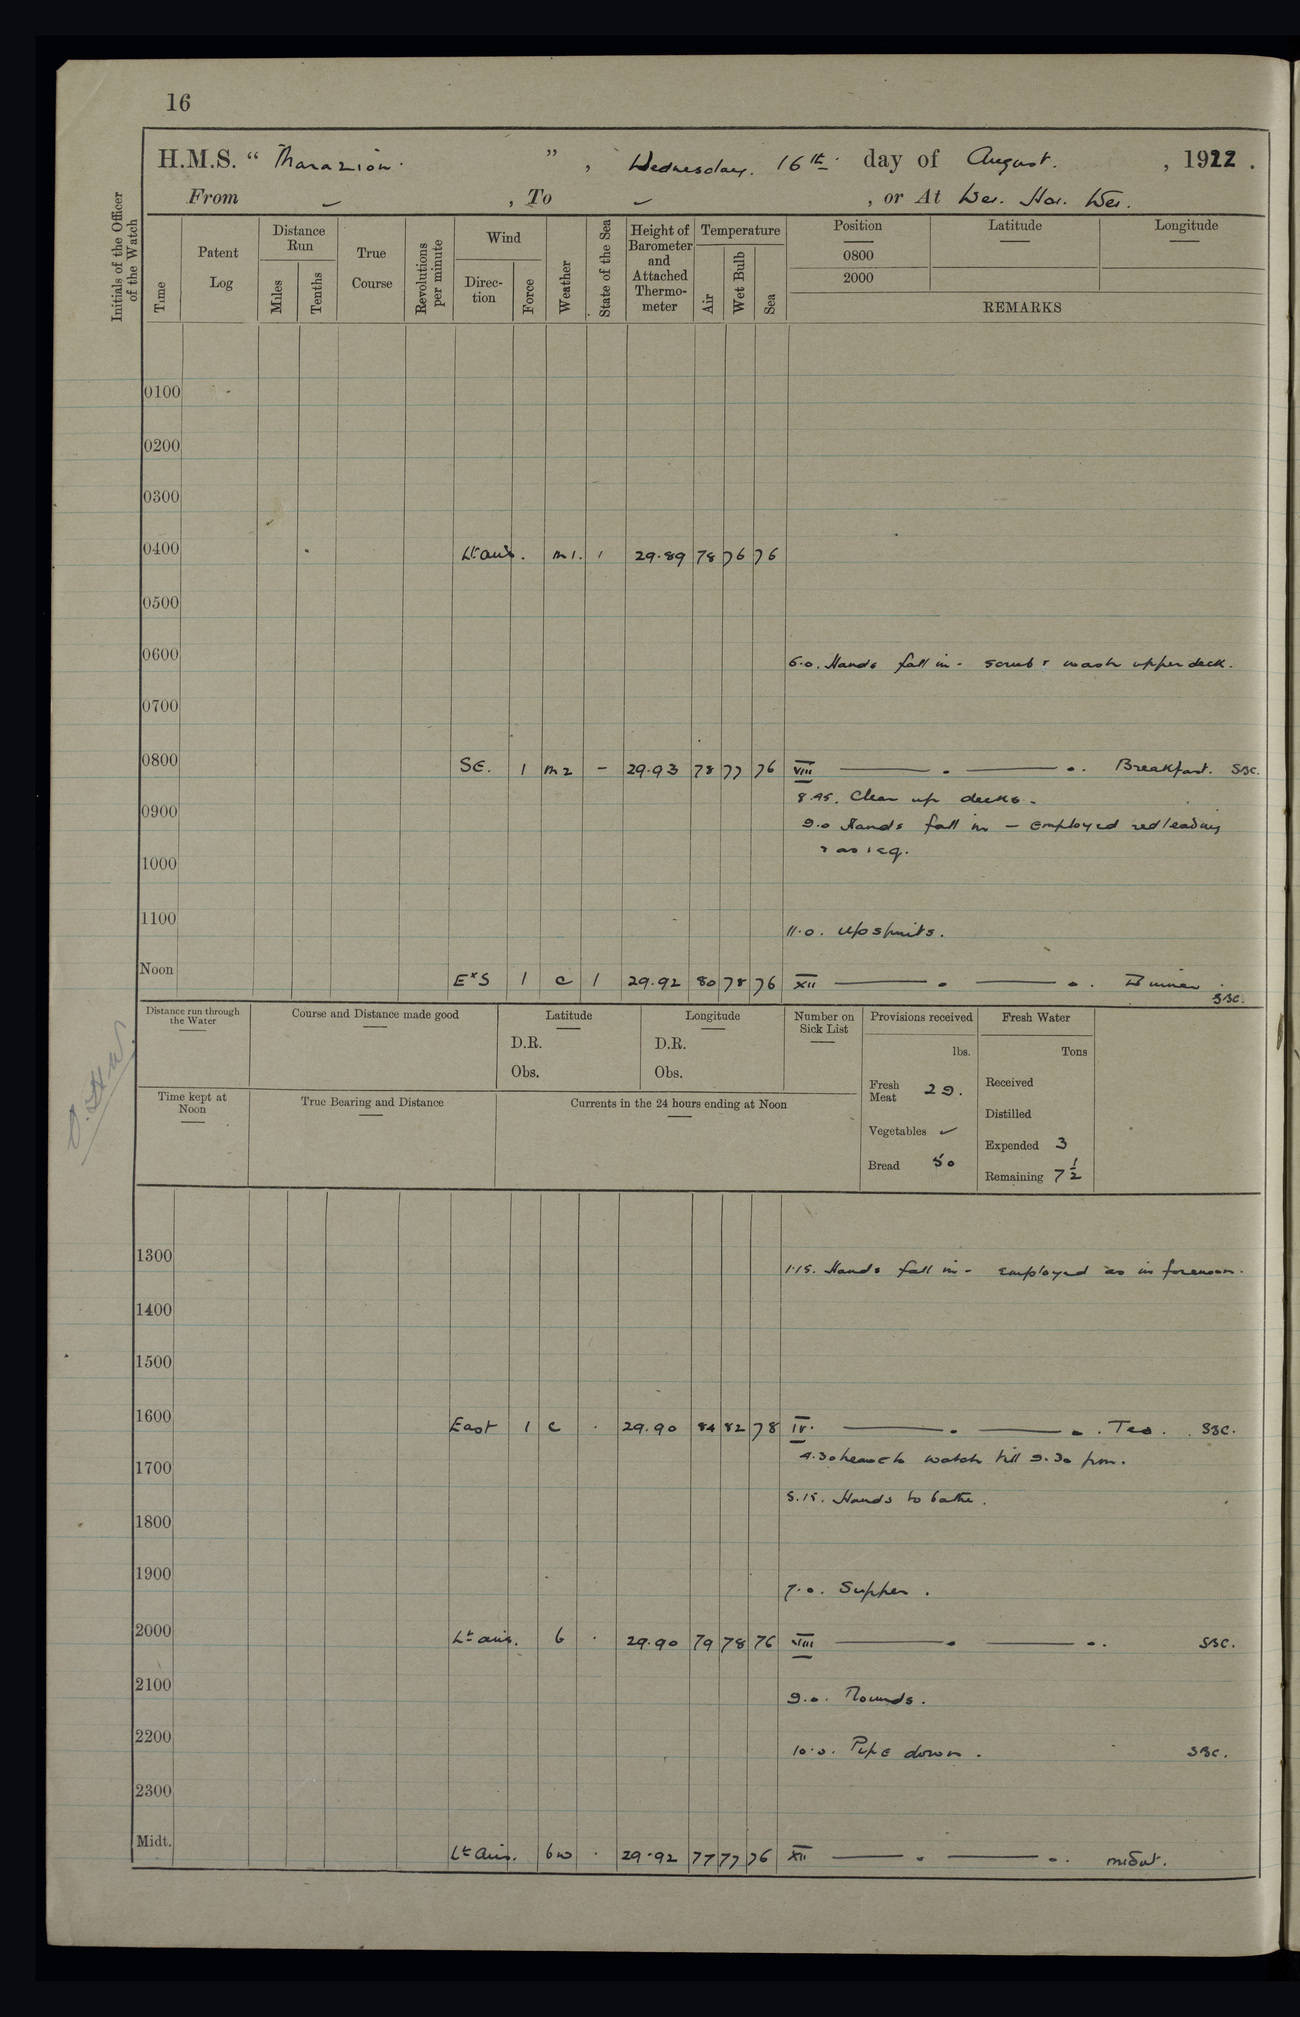 16
H.M.S. “ Marazion. ” , Wednesday. 16th day of August. , 1922 .
From ✓ , To ✓ , or At Wei. Hai. Wei.
Initials of the Officer of the Watch
Time
Patent Log
Distance Run
Miles
Tenths
True Course
Revolutions per minute
Wind
Direction
Force
Weather
State of the Sea
Height of Barometer and Attached Thermometer
Temperature
Air
Wet Bulb
Sea
Position
0800
2000
Latitude
Longitude
REMARKS
0100
0200
0300
0400 Lt airs. m 1. 1 29.89 78 76 76
0500
0600 6.0. Hands fall in - scrub & wash upper deck.
0700
0800 SE. 1 m 2 - 29.93 78 77 76 VIII Breakfast. SBC.
8.45. Clear up decks.
0900 9.0 Hands fall in - employed redleading
& as req.
1000
1100 11.0. Up spirits.
Noon ExS 1 c 1 29.92 80 78 76 XII Dinner.
SBC.
Distance run through the Water
Course and Distance made good
Latitude
D.R.
Obs.
Longitude
D.R.
Obs.
Number on Sick List
Provisions received
lbs.
Fresh Meat 29.
Vegetables ✓
Bread 50
Fresh Water
Tons
Received
Distilled
Expended 3
Remaining 7 1/2
Time kept at Noon
True Bearing and Distance
Currents in the 24 hours ending at Noon
1300 1.15. Hands fall in - employed as in forenoon.
1400
1500
1600 East 1 c . 29.90 84 82 78 IV. Tea. SBC.
4.30 watch till 9.30 pm.
1700 5.15. Hands to bathe.
1800
1900 7.0. Supper.
2000 Lt airs. b . 29.90 79 78 76 VIII SBC.
2100 9.0. Rounds.
2200 10.0. Pipe down. SBC.
2300
Midt. Lt airs. bw . 29.92 77 77 76 XII midnt.